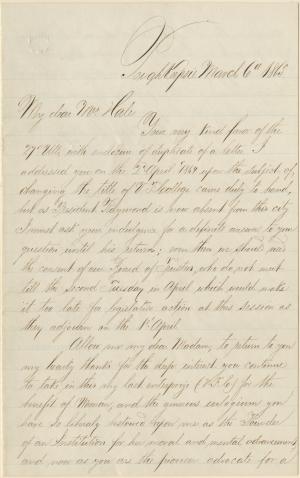 Po'keepsie March 6th 1865
My dear Mrs Hale
Your very kind favor of the
27 Ult, with enclosure of duplicate of a letter I
addressed you on the 2d April 1864 upon the subject of
changing the title of V. F. College came duly to hand,
but as President Raymond is now absent from this city
I must ask your indulgence for a definite answer to your
question until his return; even then we should need
the consent of our Board of Trustees, who do not meet
till the second Tuesday in April which would make
it too late for legislative action at this session as
they adjourn on the 1st April.
Allow me my dear Madam, to return to you
my hearty thanks for the deep interest you continue
to take in this my last enterprize (V. F. C.) for the
benefit of Woman, and the generous encomium you
have so liberaly bestowed upon me as the Founder
of an Institution for her moral and mental advancement,
and now as you are the pioneer advocate for a